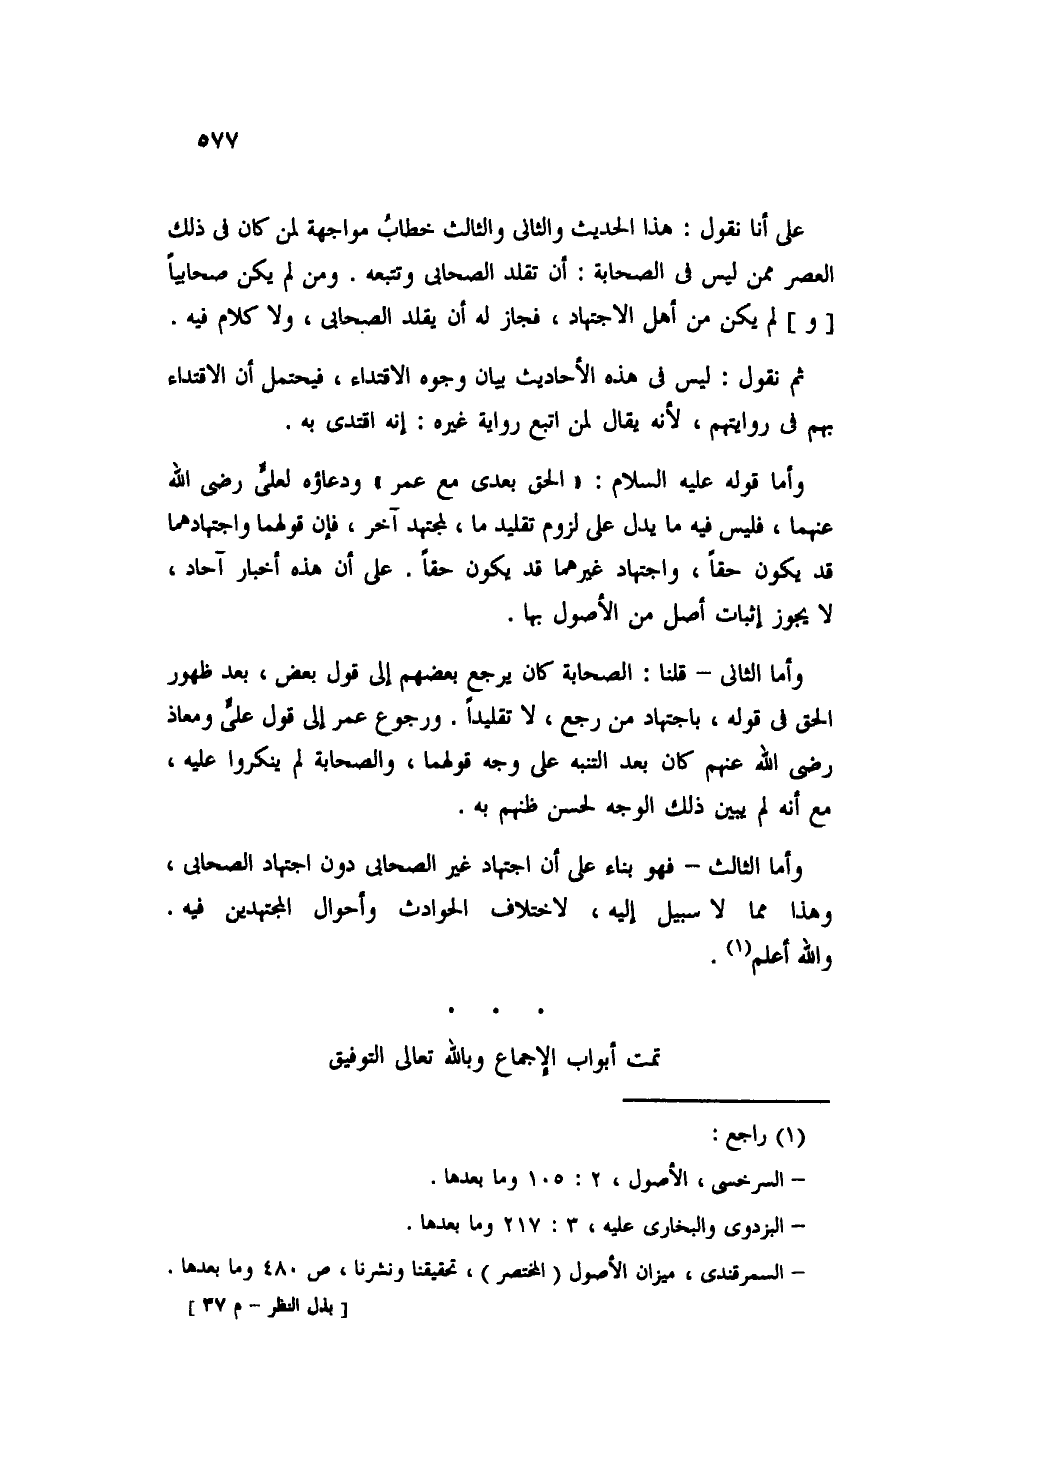 ٥٧٧
على أنا نقول : هذا الحديث والثانى والثالث خطابُ مواجهة لمن كان فى ذلك
العصر ممن ليس فى الصحابة : أن تقلد الصحابى وتتبعه . ومن لم يكن صحابياً
[ و ] لم يكن من أهل الاجتهاد ، فجاز له أن يقلد الصحابى ، ولا كلام فيه .
ثم نقول : ليس فى هذه الأحاديث بيان وجوه الاقتداء ، فيحتمل أن الاقتداء
بهم فى روايتهم ، لأنه يقال لمن اتبع رواية غيره : إنه اقتدى به .
وأما قوله عليه السلام : « الحق بعدى مع عمر » ودعاؤه لعلىٍّ رضى الله
عنهما ، فليس فيه ما يدل على لزوم تقليد ما ، لمجتهد آخر ، فإن قولهما واجتهادهما
قد يكون حقاً ، واجتهاد غيرهما قد يكون حقاً . على أن هذه أخبار آحاد ،
لا يجوز إثبات أصل من الأصول بها .
وأما الثانى – قلنا : الصحابة كان يرجع بعضهم إلى قول بعض ، بعد ظهور
الحق فى قوله ، باجتهاد من رجع ، لا تقليداً . ورجوع عمر إلى قول علىٍّ ومعاذ
رضى الله عنهم كان بعد التنبه على وجه قولهما ، والصحابة لم ينكروا عليه ،
مع أنه لم يبين ذلك الوجه لحسن ظنهم به .
وأما الثالث – فهو بناء على أن اجتهاد غير الصحابى دون اجتهاد الصحابى ،
وهذا مما لا سبيل إليه ، لاختلاف الحوادث وأحوال المجتهدين فيه .
والله أعلم(١) .
. . .
تمت أبواب الإجماع وبالله تعالى التوفيق
(١) راجع :
– السرخسى ، الأصول ، ٢ : ١٠٥ وما بعدها .
– البزدوى والبخارى عليه ، ٣ : ٢١٧ وما بعدها .
– السمرقندى ، ميزان الأصول ( المختصر ) ، تحقيقنا ونشرنا ، ص ٤٨٠ وما بعدها .
[ بذل النظر – م ٣٧ ]